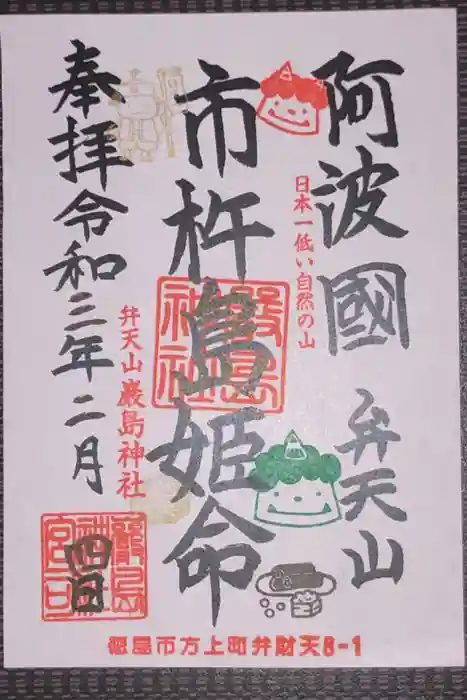 阿波國 弁天山
日本一低い自然の山
市杵島姫命
嚴島神社
弁天山 厳島神社
奉拝 令和三年二月
四日
徳島市方上町弁財天8-1